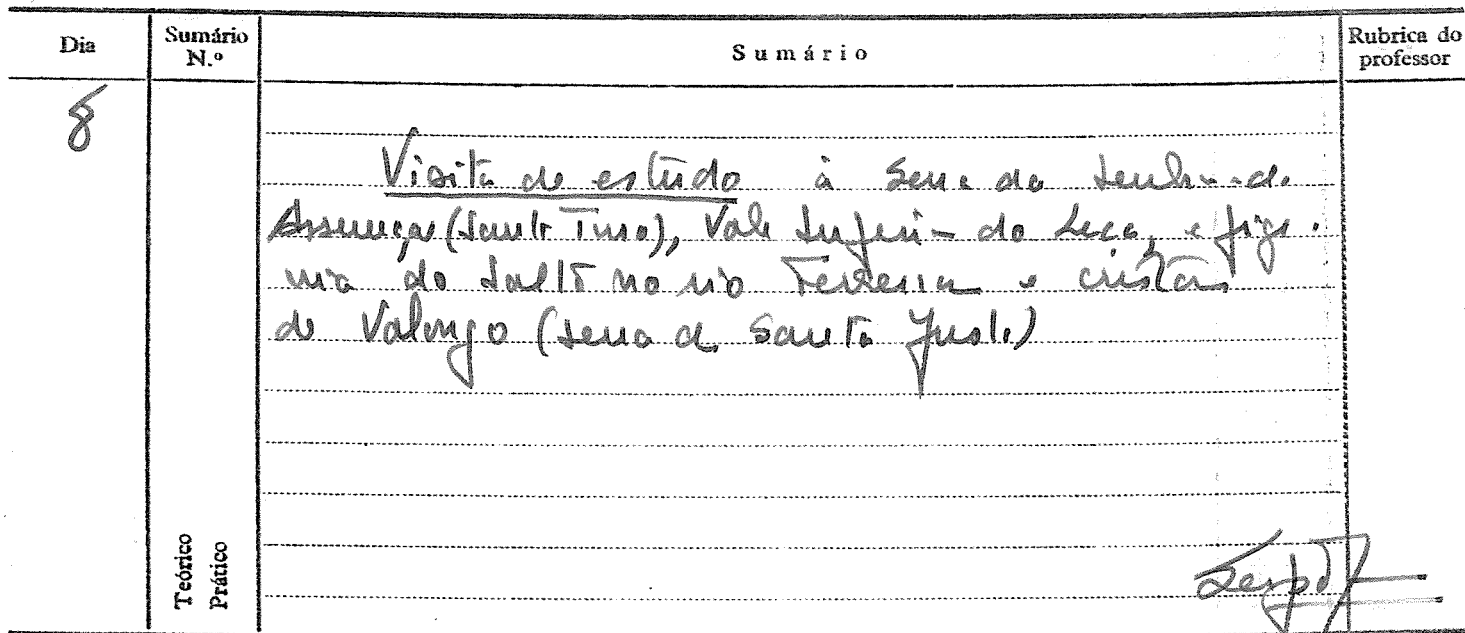 Dia
Sumário N.º
Sumário
Rubrica do professor
8
Visita de estudo à Serra da Senhora da
Assunção (Santo Tirso), Vale Inferior do Leça, e
do Salto no rio Ferreira e cristas
de Valongo (serra de Santa Justa)
Teórico
Prático